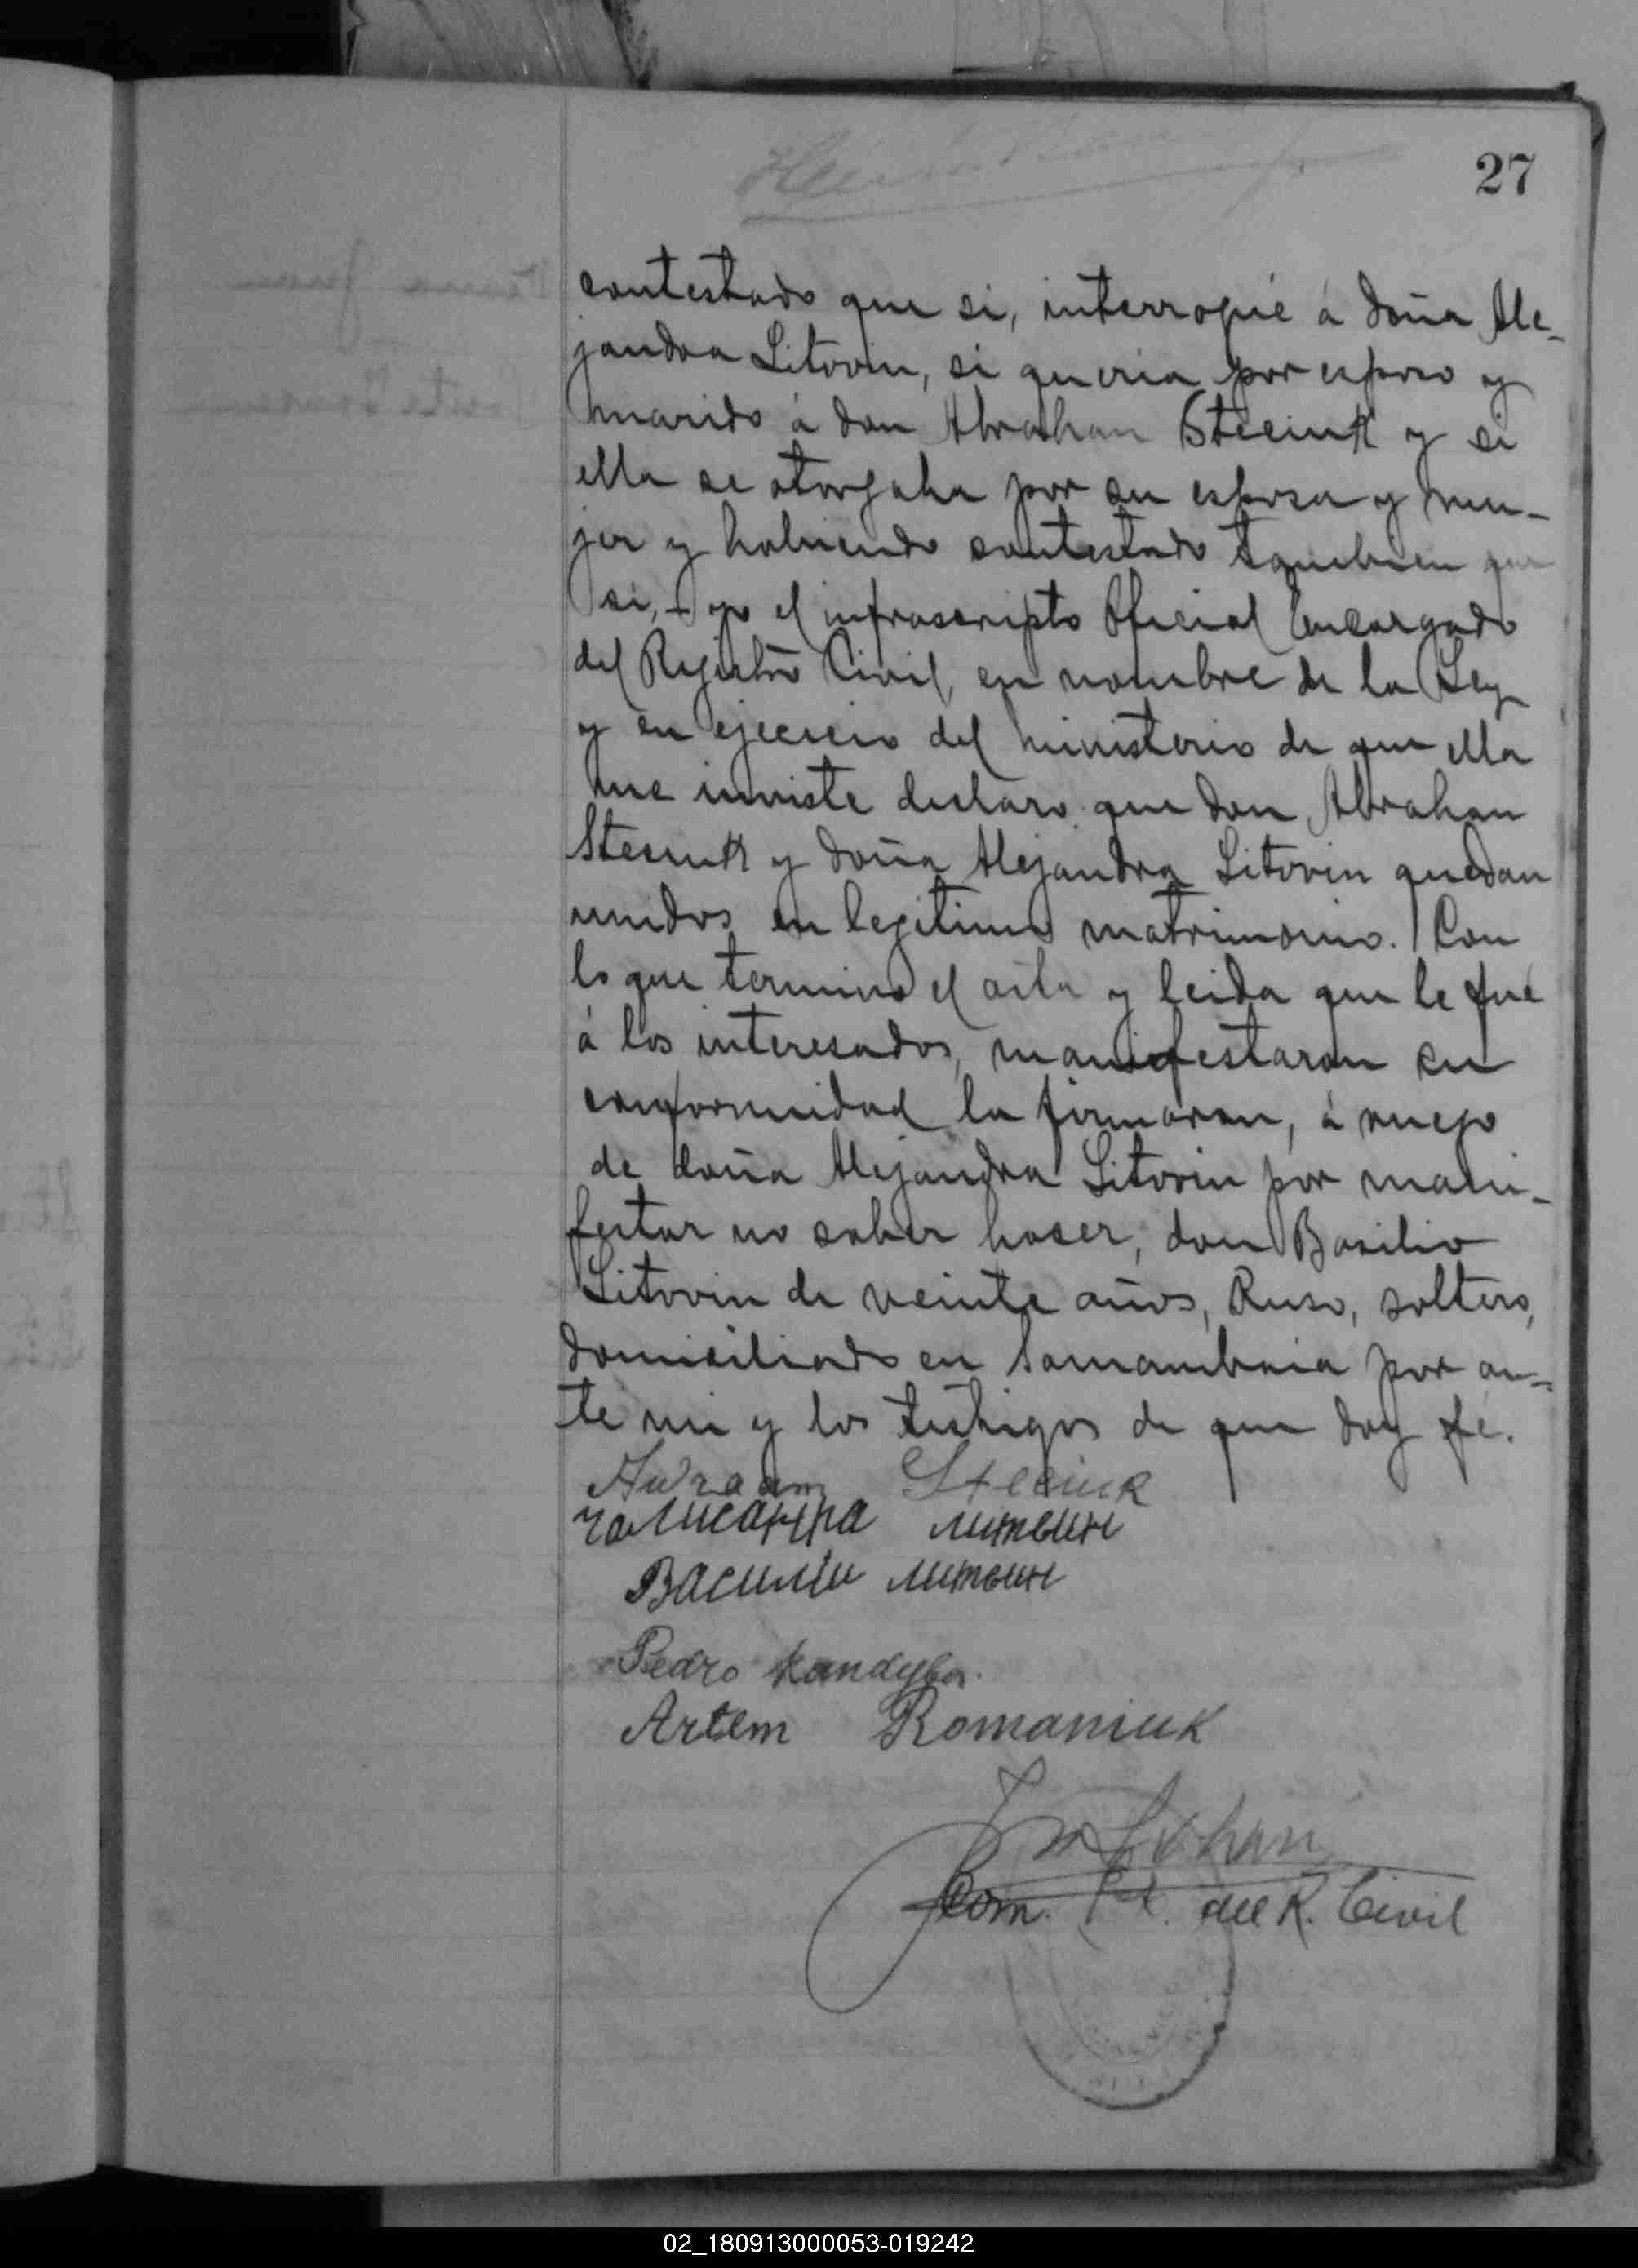 27
contestado que si, interrogué á doña Ale-
jandra Litovin, si queria por esposo y
marido á don Abrahan Steciuk y si
ella se otorgaba por su esposa y mu-
jer y habiendo contestado tambien que
si, - yo el infrascripto Oficial Encargado
del Registro Civil, en nombre de la Ley
y en ejercicio del ministerio de que ella
me inviste declaro que don Abrahan
Steciuk y doña Alejandra Litovin quedan
unidos en legitimo matrimonio. Con
lo que termino el acta y leida que le fué
á los interesados, manifestaron su
conformidad la firmaron, á ruego
de doña Alejandra Litovin por mani-
festar no saber hacer, don Basilio
Litovin de veinte años, Ruso, soltero,
domiciliado en Samambaia por an-
te mi y los testigos de que doy fé.
Awraam Steciuk
литвин
Васили литвин
Pedro Kandyba.
Artem Romaniuk
Com. del R. Civil
02_180913000053-019242